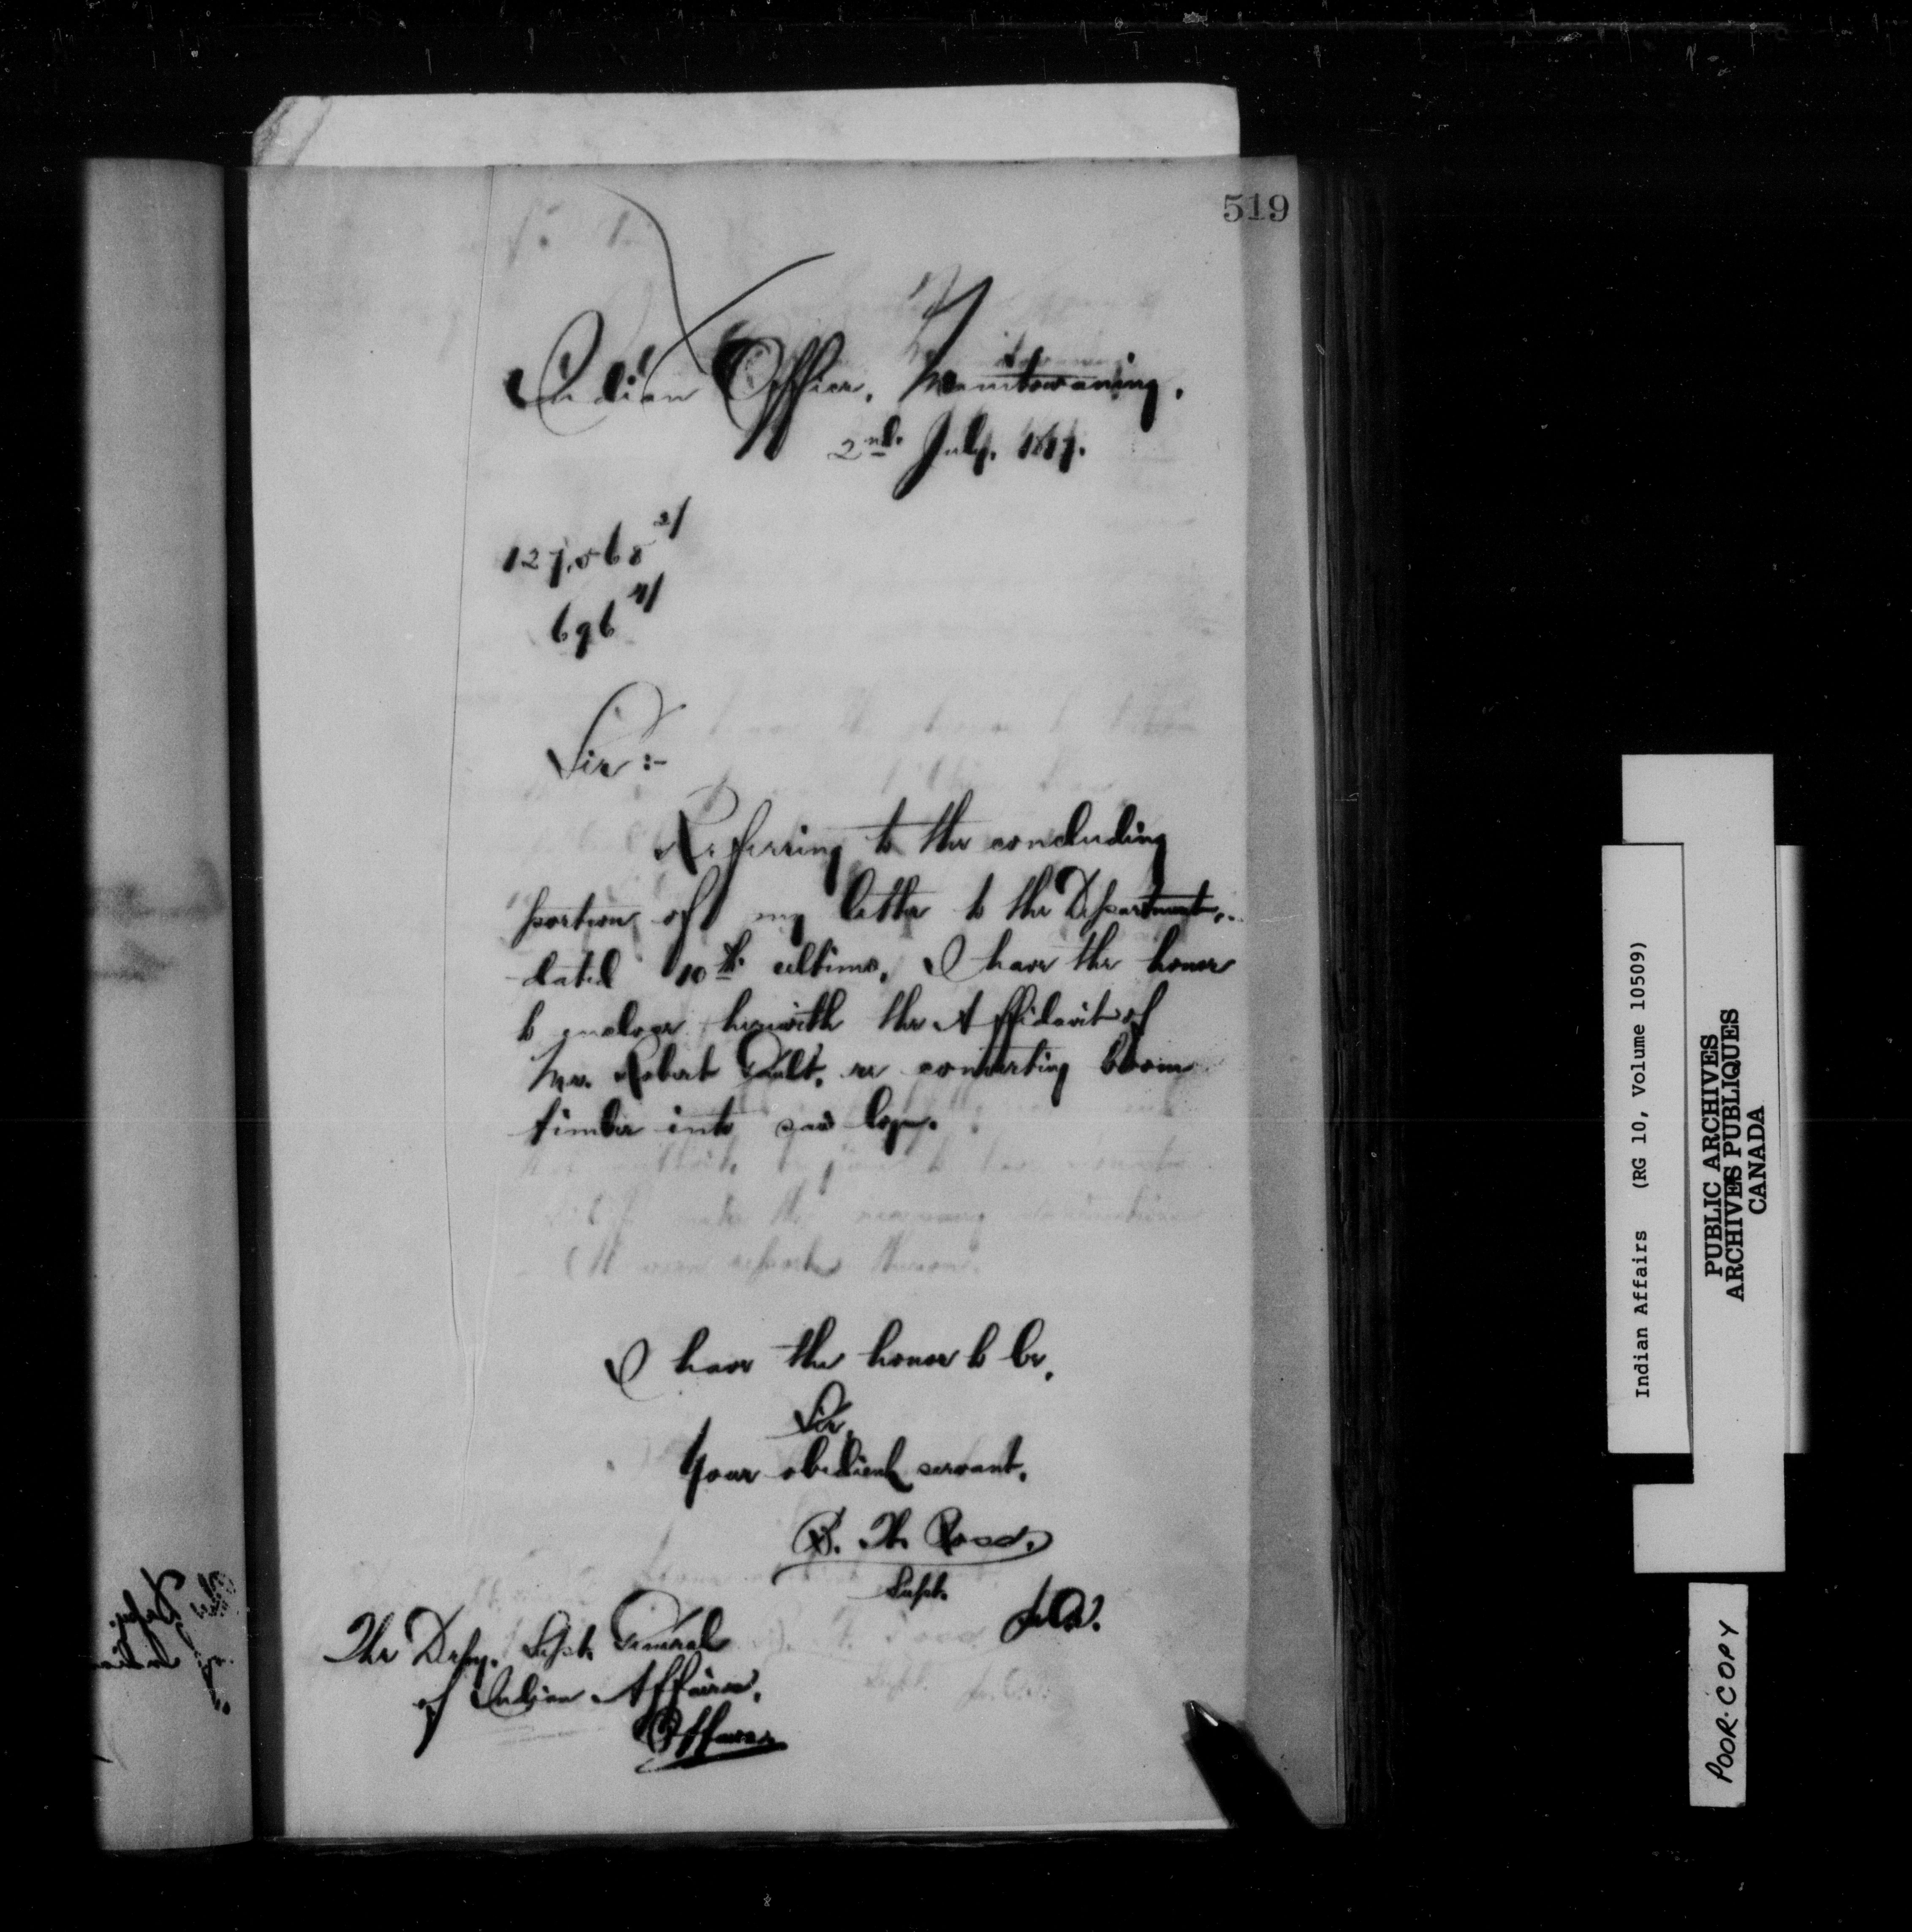 519
Indian Office, Manitowaning,
2nd July, 1897.
127,568 2/
696 4/
Sir :-
Referring to the concluding
portion of my letter to the Department,
dated 10th ultimo, I have the honor
to enclose herewith the Affidavit of
Mr. Robert Gault, re converting Boom
timber into saw logs.
I have the honor to be,
Sir,
Your obedient servant,
B. W. Ross,
Supt.
The Depy. Supt. General
of Indian Affairs,
Ottawa
Indian Affairs (RG 10, Volume 10509)
PUBLIC ARCHIVES
ARCHIVES PUBLIQUES
CANADA
POOR COPY